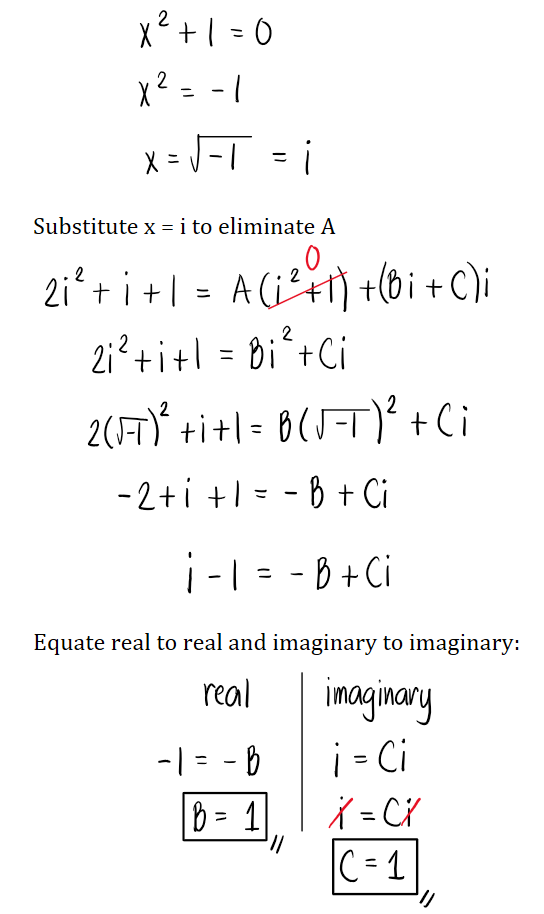 x² + 1 = 0
x² = -1
x = √-1 = i
Substitute x = i to eliminate A
0
2i² + i + 1 = A(i² + 1) + (Bi + C)i
2i² + i + 1 = Bi² + Ci
2(√-1)² + i + 1 = B(√-1)² + Ci
-2 + i + 1 = -B + Ci
i - 1 = -B + Ci
Equate real to real and imaginary to imaginary:
real | imaginary
-1 = -B | i = Ci
B = 1 | i = Ci
C = 1